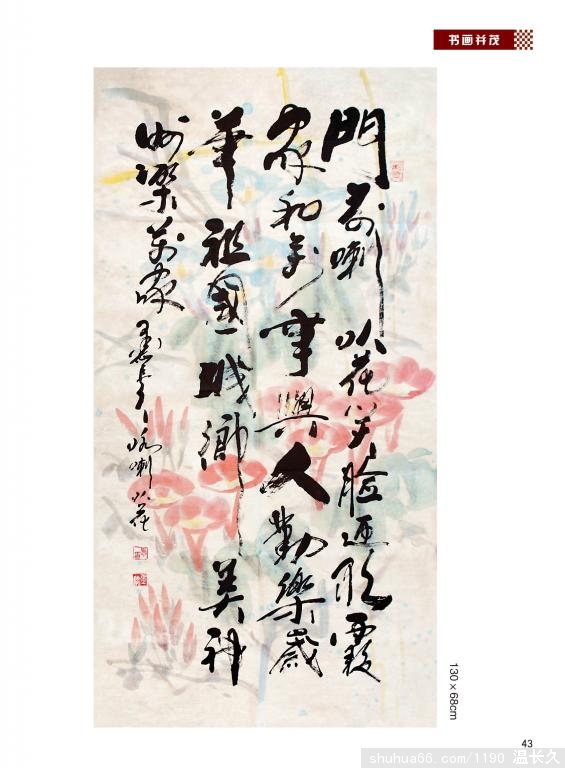 书画并茂
門前喇叭花笑脸迎霞
家和萬事興人勤樂歲
華祖國城鄉美神
州樂萬家 咏喇叭花
130×68cm
43
shuhua66.com/1190 温长久